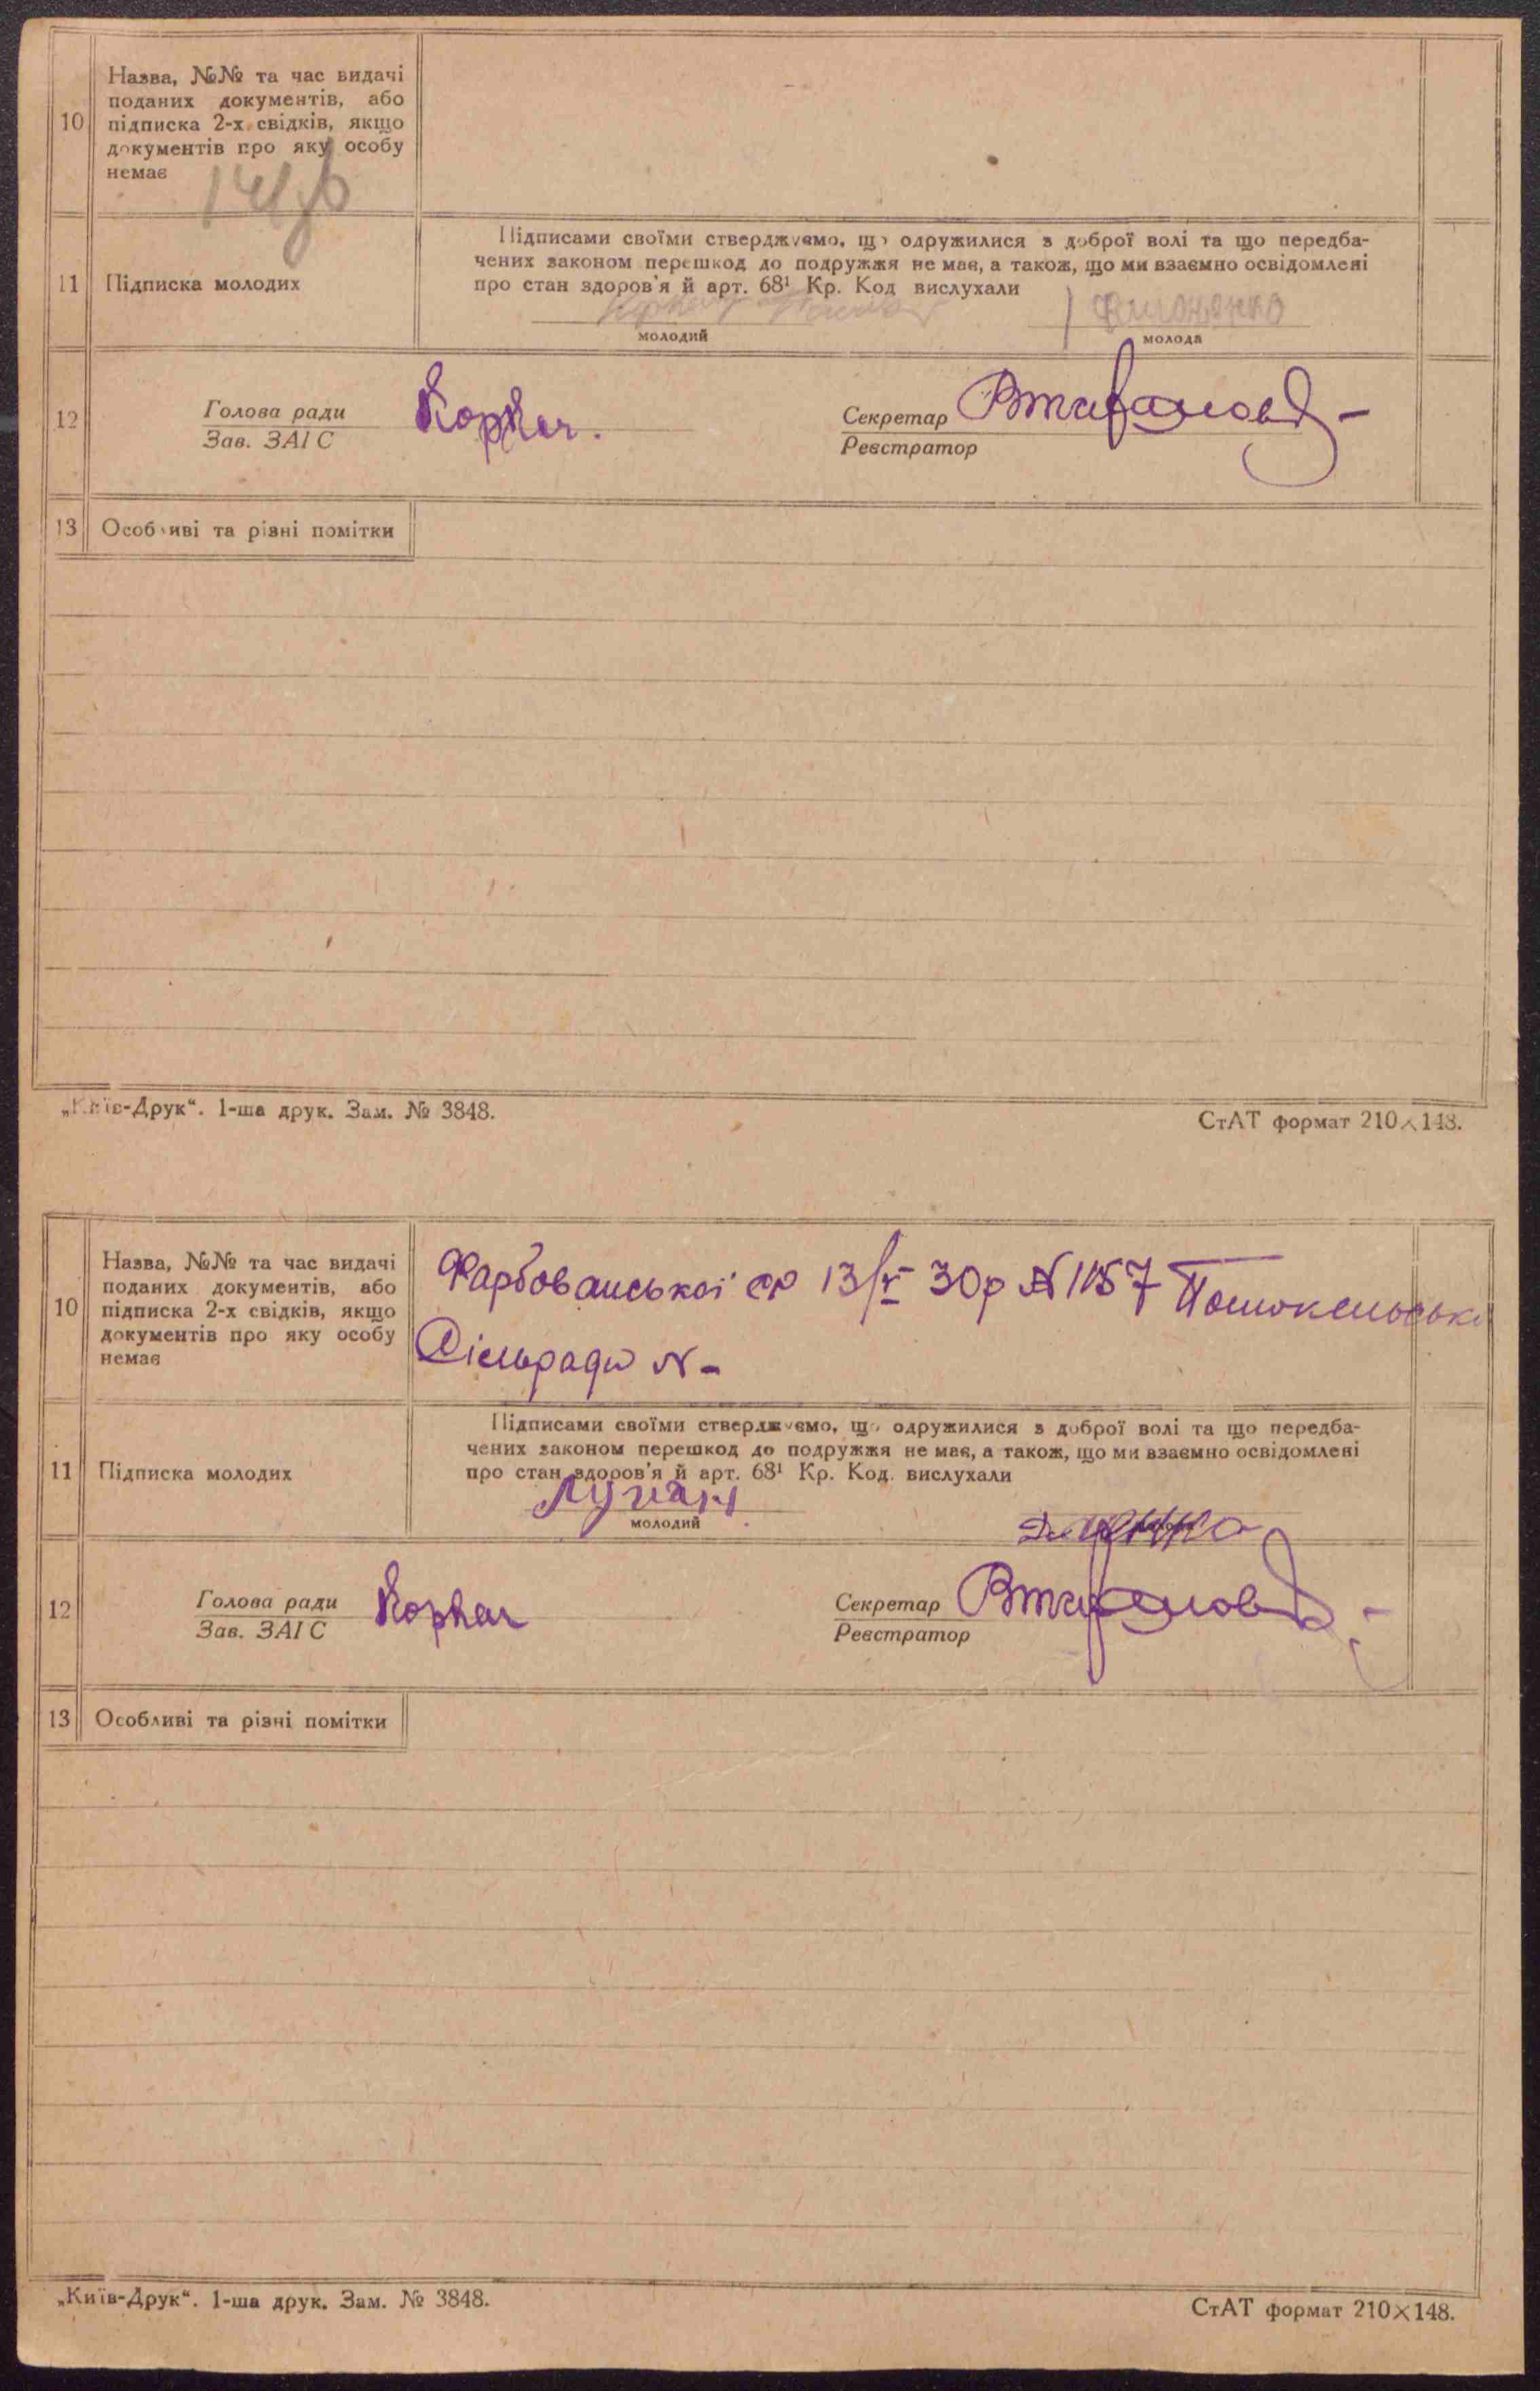 10
Назва, №№ та час видачі
поданих документів, або
підписка 2-х свідків, якщо
документів про яку особу
немає
11
Підписка молодих
Підписами своїми стверджуємо, що одружилися з доброї волі та що передба-
чених законом перешкод до подружжя не має, а також, що ми взаємно освідомлені
про стан здоров'я й арт. 68¹ Кр. Код вислухали
молодий
молода
12
Голова ради
Зав. ЗАГС
Коркач.
Секретар
Реєстратор
13
Особливі та різні помітки
„Київ-Друк“. 1-ша друк. Зам. № 3848.
СтАТ формат 210×148.
10
Назва, №№ та час видачі
поданих документів, або
підписка 2-х свідків, якщо
документів про яку особу
немає
Фарбованської ср 13/V 30р №1157
Сільради N-
11
Підписка молодих
Підписами своїми стверджуємо, що одружилися з доброї волі та що передба-
чених законом перешкод до подружжя не має, а також, що ми взаємно освідомлені
про стан здоров'я й арт. 68¹ Кр. Код. вислухали
молодий
12
Голова ради
Зав. ЗАГС
Коркач
Секретар
Реєстратор
13
Особливі та різні помітки
„Київ-Друк“. 1-ша друк. Зам. № 3848.
СтАТ формат 210×148.